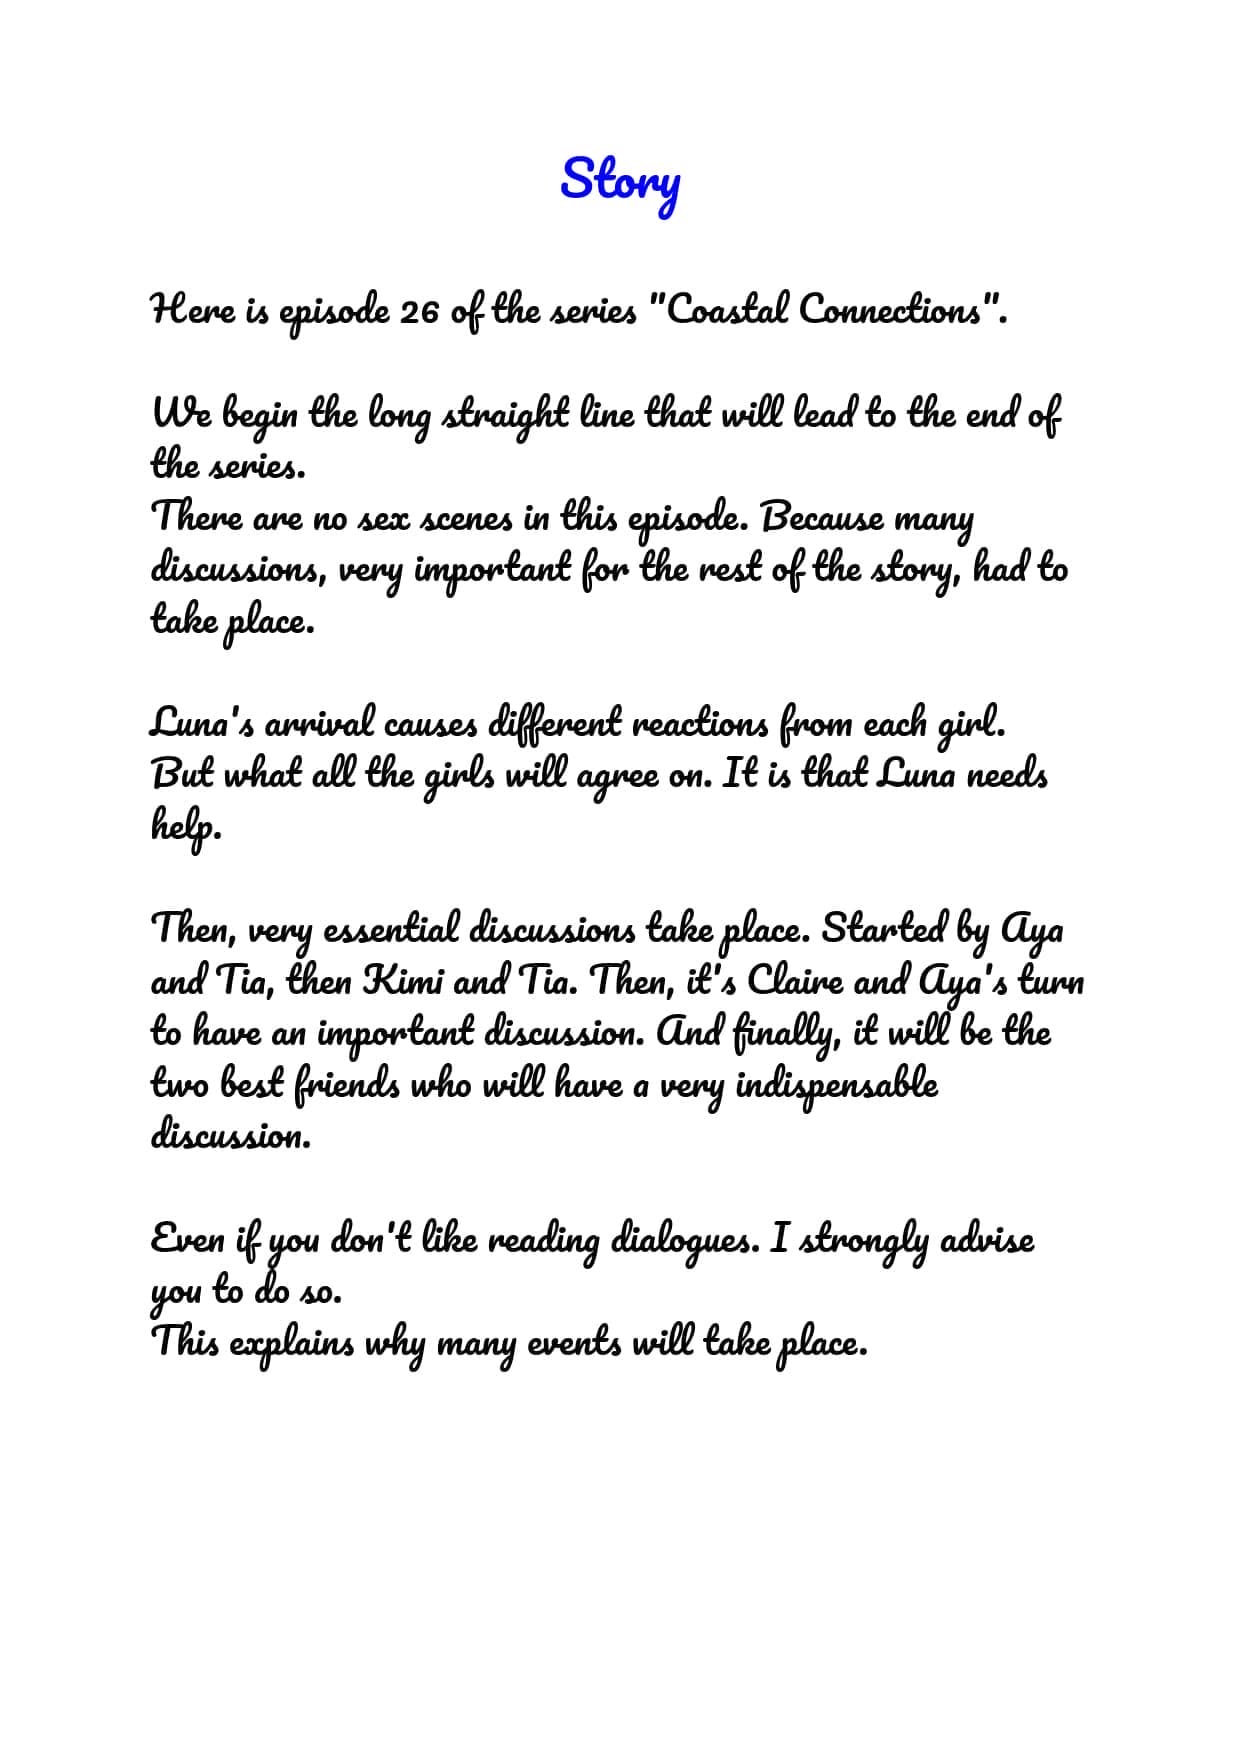 Story
Here is episode 26 of the series "Coastal Connections".
We begin the long straight line that will lead to the end of
the series.
There are no sex scenes in this episode. Because many
discussions, very important for the rest of the story, had to
take place.
Luna's arrival causes different reactions from each girl.
But what all the girls will agree on. It is that Luna needs
help.
Then, very essential discussions take place. Started by Aya
and Tia, then Kimi and Tia. Then, it's Claire and Aya's turn
to have an important discussion. And finally, it will be the
two best friends who will have a very indispensable
discussion.
Even if you don't like reading dialogues. I strongly advise
you to do so.
This explains why many events will take place.